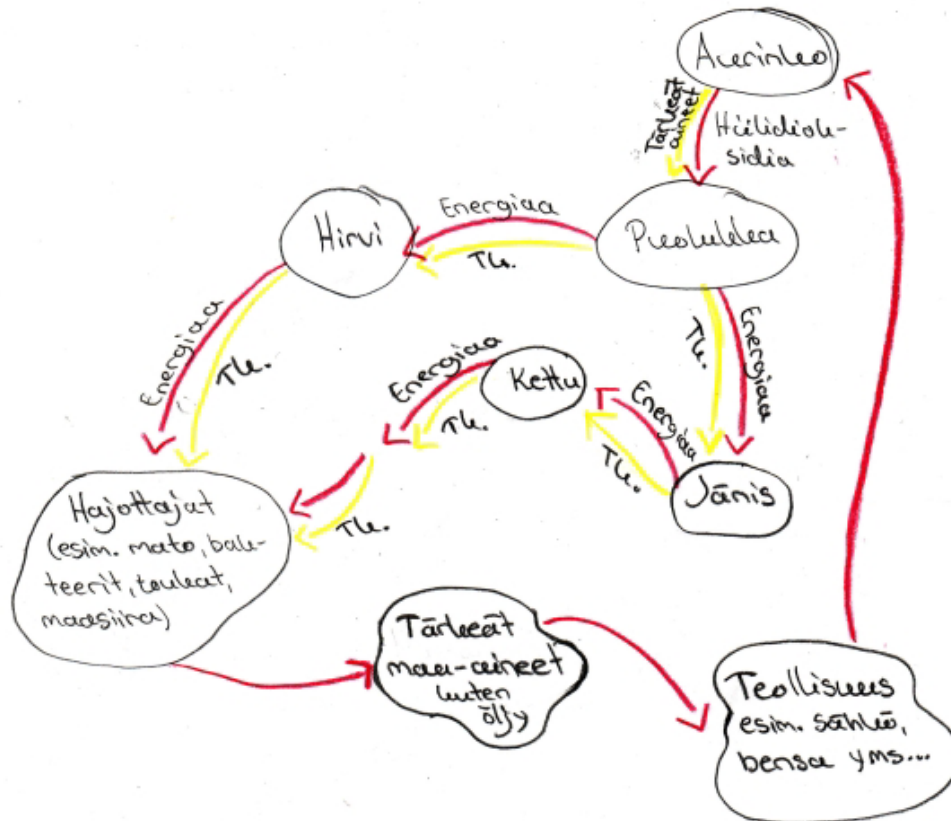 Aurinko
Tärkeät
aineet
Hiilidiok-
sidia
Hirvi
Energiaa
Tk.
Puolukka
Energiaa
Tk.
Tk.
Energiaa
Energiaa
Tk.
Kettu
Energiaa
Tk.
Jänis
Tk.
Hajottajat
(esim. mato, bak-
teerit, toukat,
maasiira)
Tärkeät
maa-aineet
kuten
öljy
Teollisuus
esim. sähkö,
bensa yms...